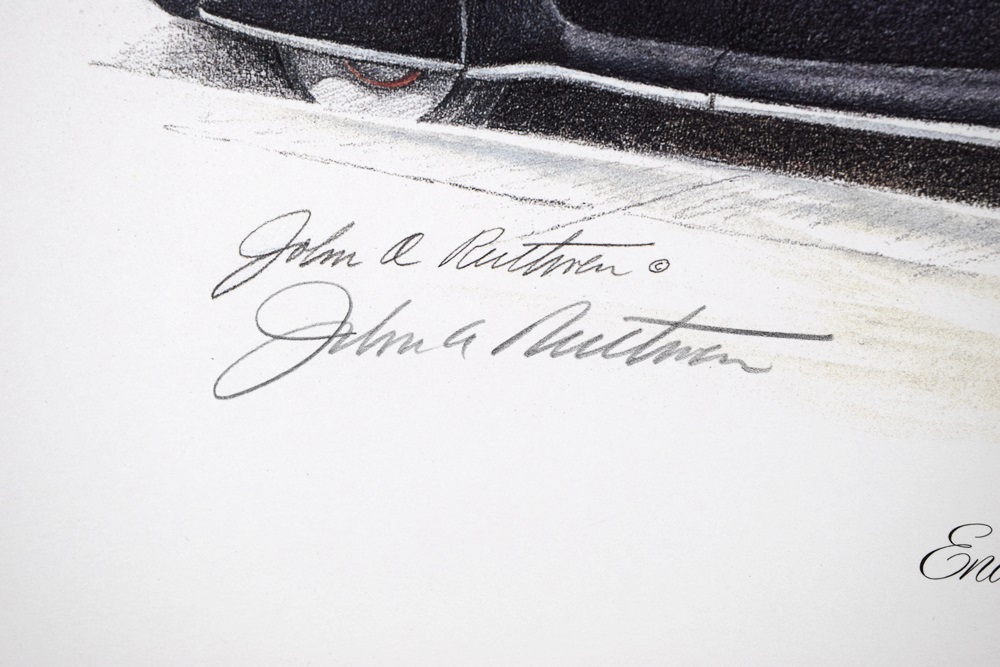 John A Ruthven ©
John A Ruthven
En